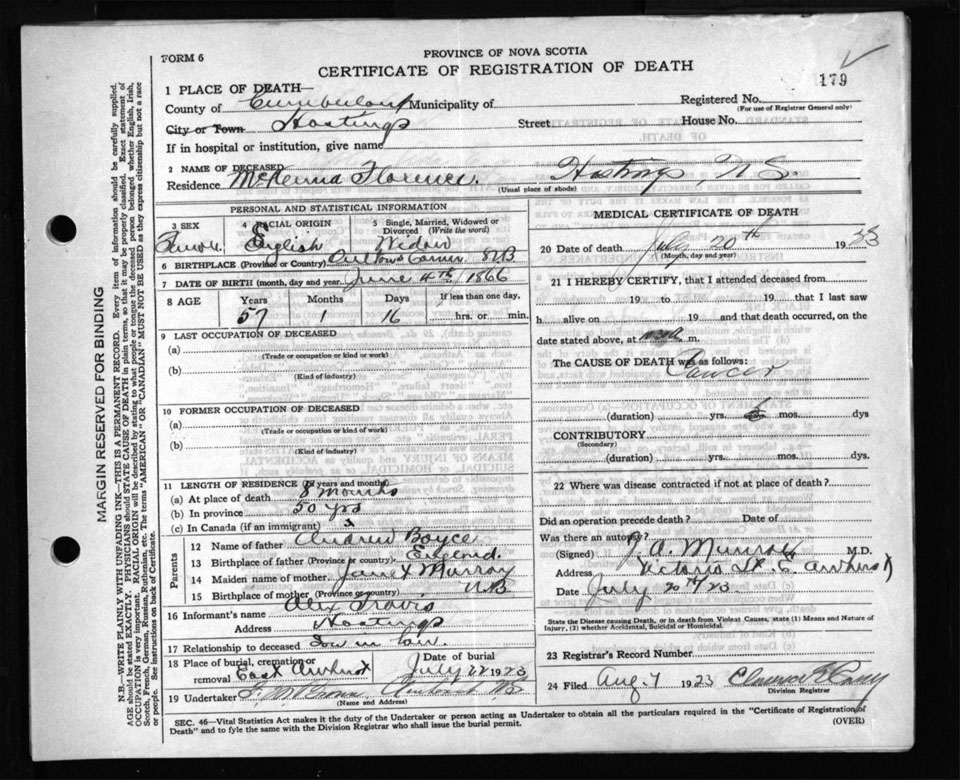 FORM 6
PROVINCE OF NOVA SCOTIA
CERTIFICATE OF REGISTRATION OF DEATH
179
1 PLACE OF DEATH—
County of Cumberland Municipality of
Registered No.
(For use of Registrar General only)
City or Town Hastings Street House No.
If in hospital or institution, give name
2 NAME OF DECEASED McKenna Florence
Residence Hastings N S.
(Usual place of abode)
PERSONAL AND STATISTICAL INFORMATION
3 SEX 4 RACIAL ORIGIN 5 Single, Married, Widowed or Divorced (Write the word)
English Widow
6 BIRTHPLACE (Province or Country) Corner NB
7 DATE OF BIRTH (month, day and year) June 4th 1866
8 AGE Years Months Days If less than one day,
57 1 16 hrs. or min.
9 LAST OCCUPATION OF DECEASED
(a)
(Trade or occupation or kind or work)
(b)
(Kind of industry)
10 FORMER OCCUPATION OF DECEASED
(a)
(Trade or occupation or kind of work)
(b)
(Kind of industry)
11 LENGTH OF RESIDENCE (in years and months)
(a) At place of death 8 Months
(b) In province 50 yrs
(c) In Canada (if an immigrant)
Parents
12 Name of father Andrew Boyce
13 Birthplace of father (Province or country) England.
14 Maiden name of mother Murray
15 Birthplace of mother (Province or country) NB
16 Informant's name Alex Travis
Address Hastings
17 Relationship to deceased Son in law.
18 Place of burial, cremation or removal East Amherst Date of burial July 22 1923
19 Undertaker Amherst NS
(Name and Address)
MEDICAL CERTIFICATE OF DEATH
20 Date of death July 20th 19
(Month, day and year)
21 I HEREBY CERTIFY, that I attended deceased from
19 to 19 that I last saw
h alive on 19 and that death occurred, on the
date stated above, at m.
The CAUSE OF DEATH was as follows:
Cancer
(duration) yrs. 6 mos. dys
CONTRIBUTORY
(Secondary)
(duration) yrs. mos. dys.
22 Where was disease contracted if not at place of death?
Did an operation precede death? Date of
Was there an autopsy?
(Signed) J. A. Munro M.D.
Address Victoria St. E. Amherst
Date July 20th/23.
State the Disease causing Death, or in death from Violent Causes, state (1) Means and Nature of
Injury, (2) whether Accidental, Suicidal or Homicidal.
23 Registrar's Record Number
24 Filed Aug. 7 1923
Division Registrar
SEC. 46—Vital Statistics Act makes it the duty of the Undertaker or person acting as Undertaker to obtain all the particulars required in the "Certificate of Registration of
Death" and to fyle the same with the Division Registrar who shall issue the burial permit.
(OVER)
MARGIN RESERVED FOR BINDING
N.B.—WRITE PLAINLY WITH UNFADING INK—THIS IS A PERMANENT RECORD. Every item of information should be carefully supplied.
AGE should be stated EXACTLY. PHYSICIANS should STATE CAUSE OF DEATH in plain terms, so that it may be properly classified. Exact statement of
OCCUPATION is very important. RACIAL ORIGIN will be described by stating to what people or tongue the deceased person belonged whether English, Irish,
Scotch, French, German, Russian, Ruthenian, etc. The terms "AMERICAN" or "CANADIAN" MUST NOT BE USED as they express citizenship but not a race
or people. See instructions on back of Certificate.